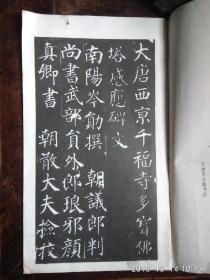 大唐西京千福寺多寶佛
塔感應碑文
南陽岑勛撰　朝議郎判
尚書武部員外郎琅邪顏
真卿書　朝散大夫撿挍